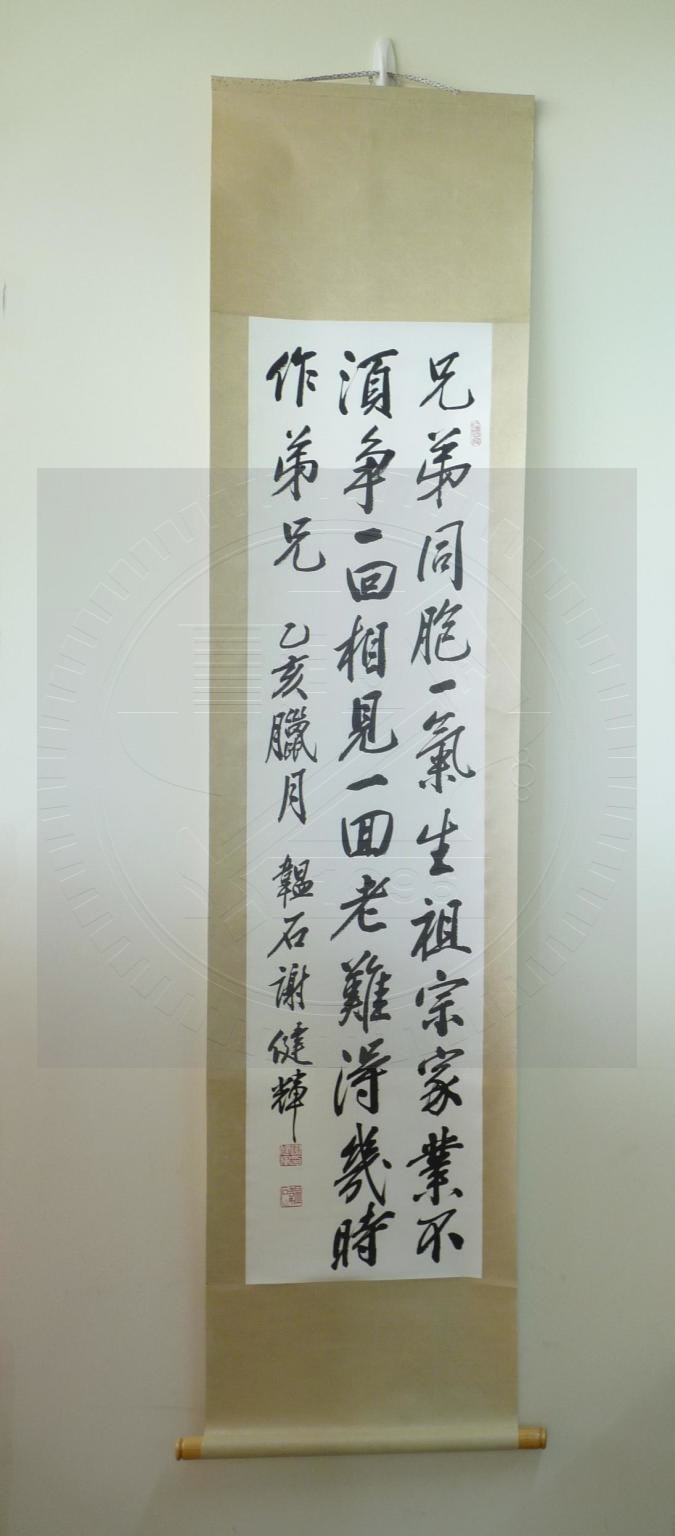 兄弟同胞一氣生祖宗家業不
須争一回相見一回老難得幾時
作弟兄 乙亥臘月 韞石謝健輝